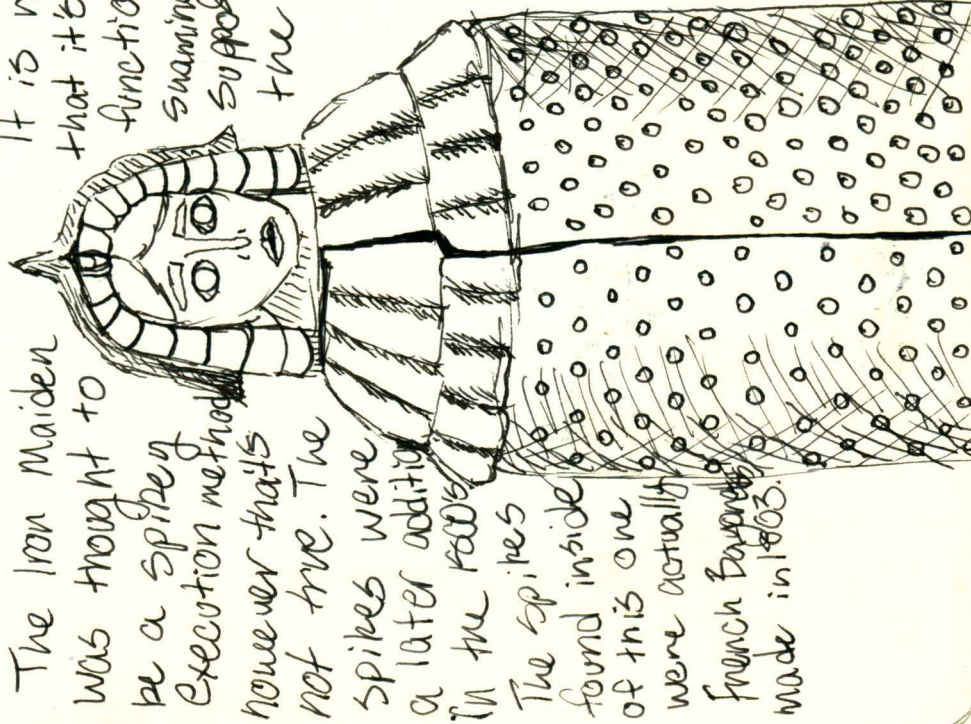 The Iron Maiden
was thought to
be a spikey
execution method
however thats
not true. The
spikes were
a later additio
In the 1800s.
The spikes
found inside
of this one
were actually
French Bayonets
made in 1803.
It is
that it's
functio
shaming
suppos
the